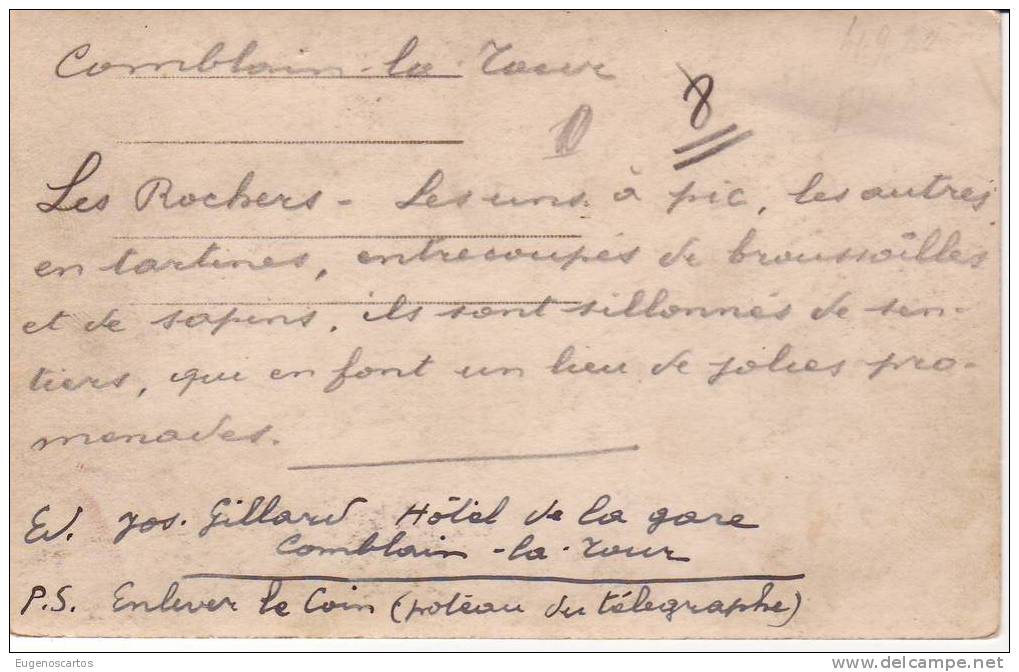 Comblain-la-Tour
8
Les Rochers - Les uns à pic, les autres
en tartines, entrecoupés de broussailles
et de sapins, ils sont sillonnés de sen-
tiers, qui en font un lieu de jolies pro-
menades.
Ed. Jos. Gillard Hôtel de la gare
Comblain-la-Tour
P.S. Enlever le Coin (poteau du télégraphe)
Eugenoscartos
www.delcampe.net